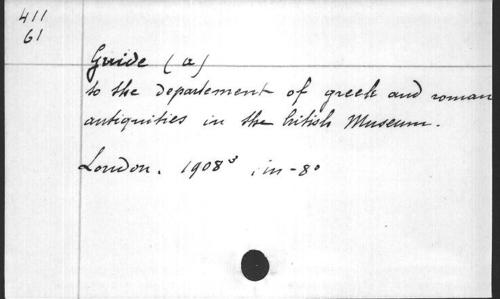 411
61
Guide (a)
to the departement of greek and roman
antiquities in the british Museum.
London. 1908³, in-8°